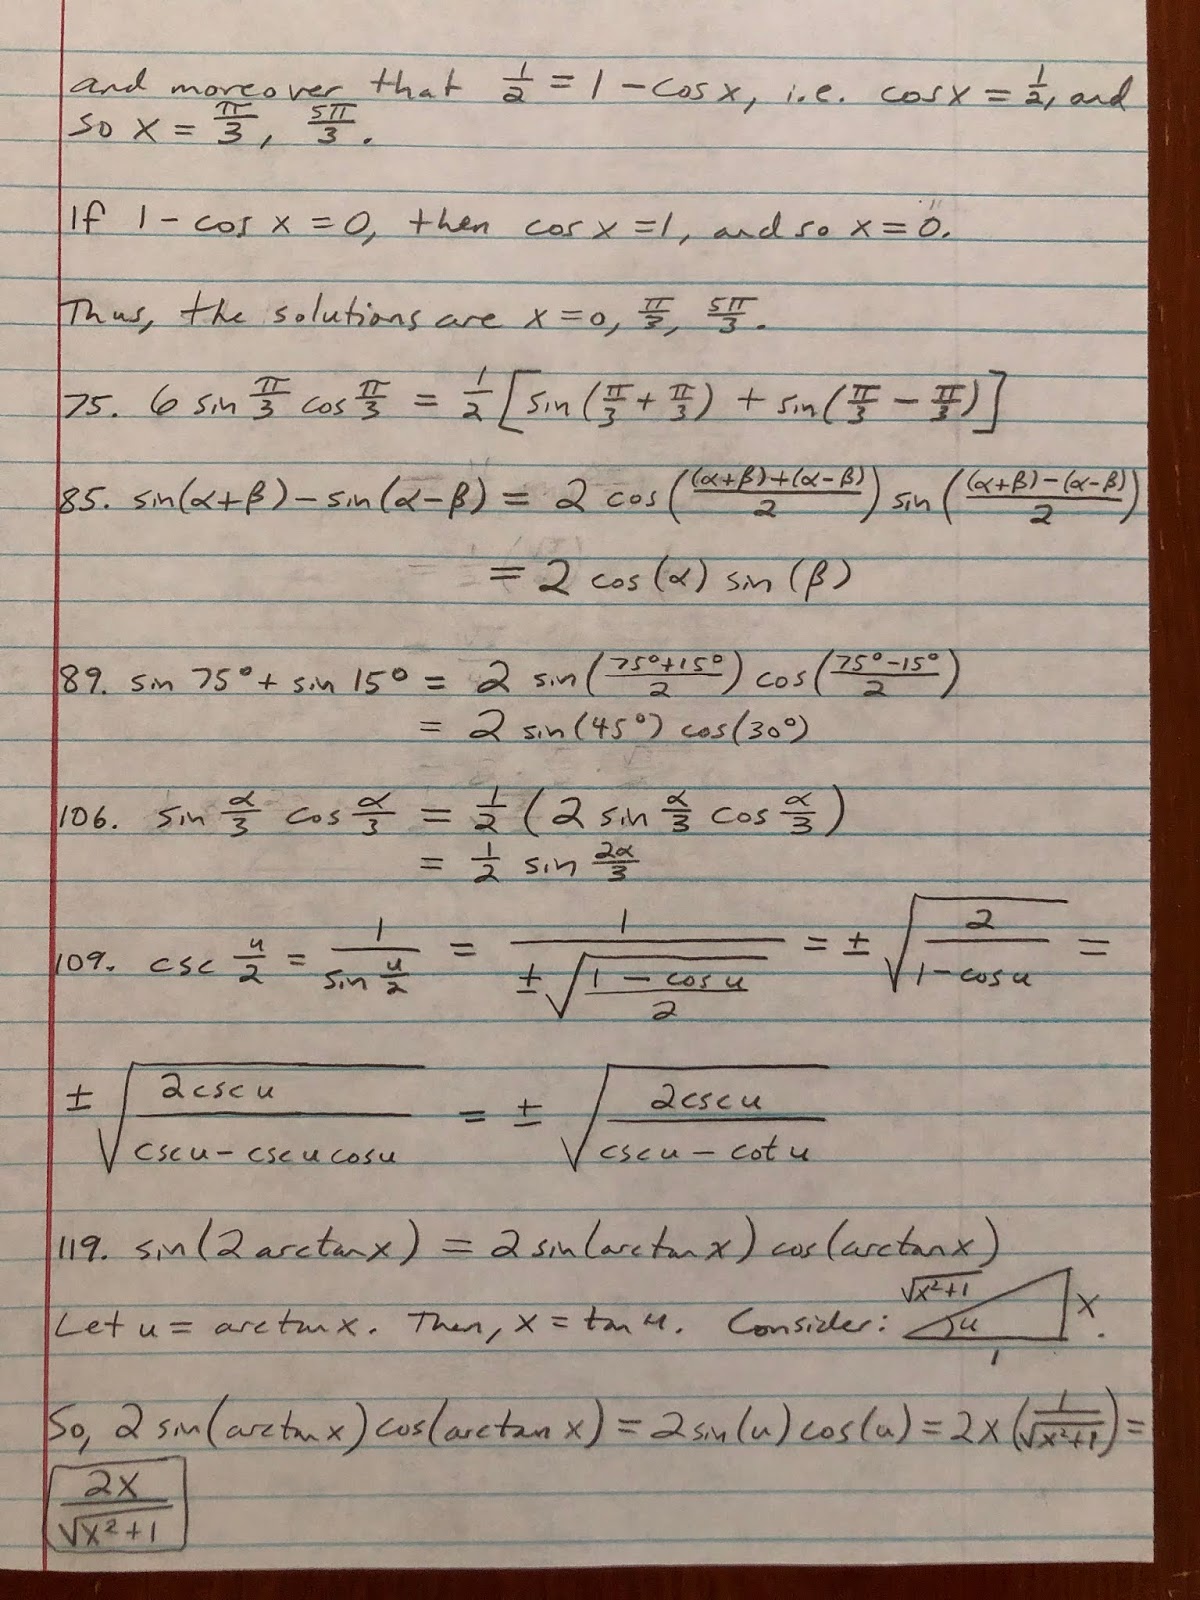 and moreover that 1/2 = 1 - cos x, i.e. cos x = 1/2, and
so x = π/3, 5π/3.
If 1 - cos x = 0, then cos x = 1, and so x = 0.
Thus, the solutions are x = 0, π/3, 5π/3.
75. 6 sin π/3 cos π/3 = 1/2 [sin(π/3 + π/3) + sin(π/3 - π/3)]
85. sin(α+β) - sin(α-β) = 2 cos(((α+β)+(α-β))/2) sin(((α+β)-(α-β))/2)
= 2 cos(α) sin(β)
89. sin 75° + sin 15° = 2 sin((75°+15°)/2) cos((75°-15°)/2)
= 2 sin(45°) cos(30°)
106. sin α/3 cos α/3 = 1/2 (2 sin α/3 cos α/3)
= 1/2 sin 2α/3
109. csc u/2 = 1/(sin u/2) = 1/(±√((1 - cos u)/2)) = ±√(2/(1 - cos u)) =
±√(2 csc u/(csc u - csc u cos u)) = ±√(2 csc u/(csc u - cot u))
119. sin(2 arctan x) = 2 sin(arctan x) cos(arctan x)
Let u = arctan x. Then, x = tan u. Consider: √x²+1 u x 1 .
So, 2 sin(arctan x) cos(arctan x) = 2 sin(u) cos(u) = 2x (1/√x²+1) =
2x/√x²+1